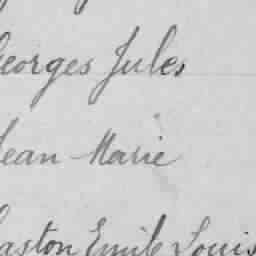 Georges Jules
Jean Marie
Gaston Emile Louis